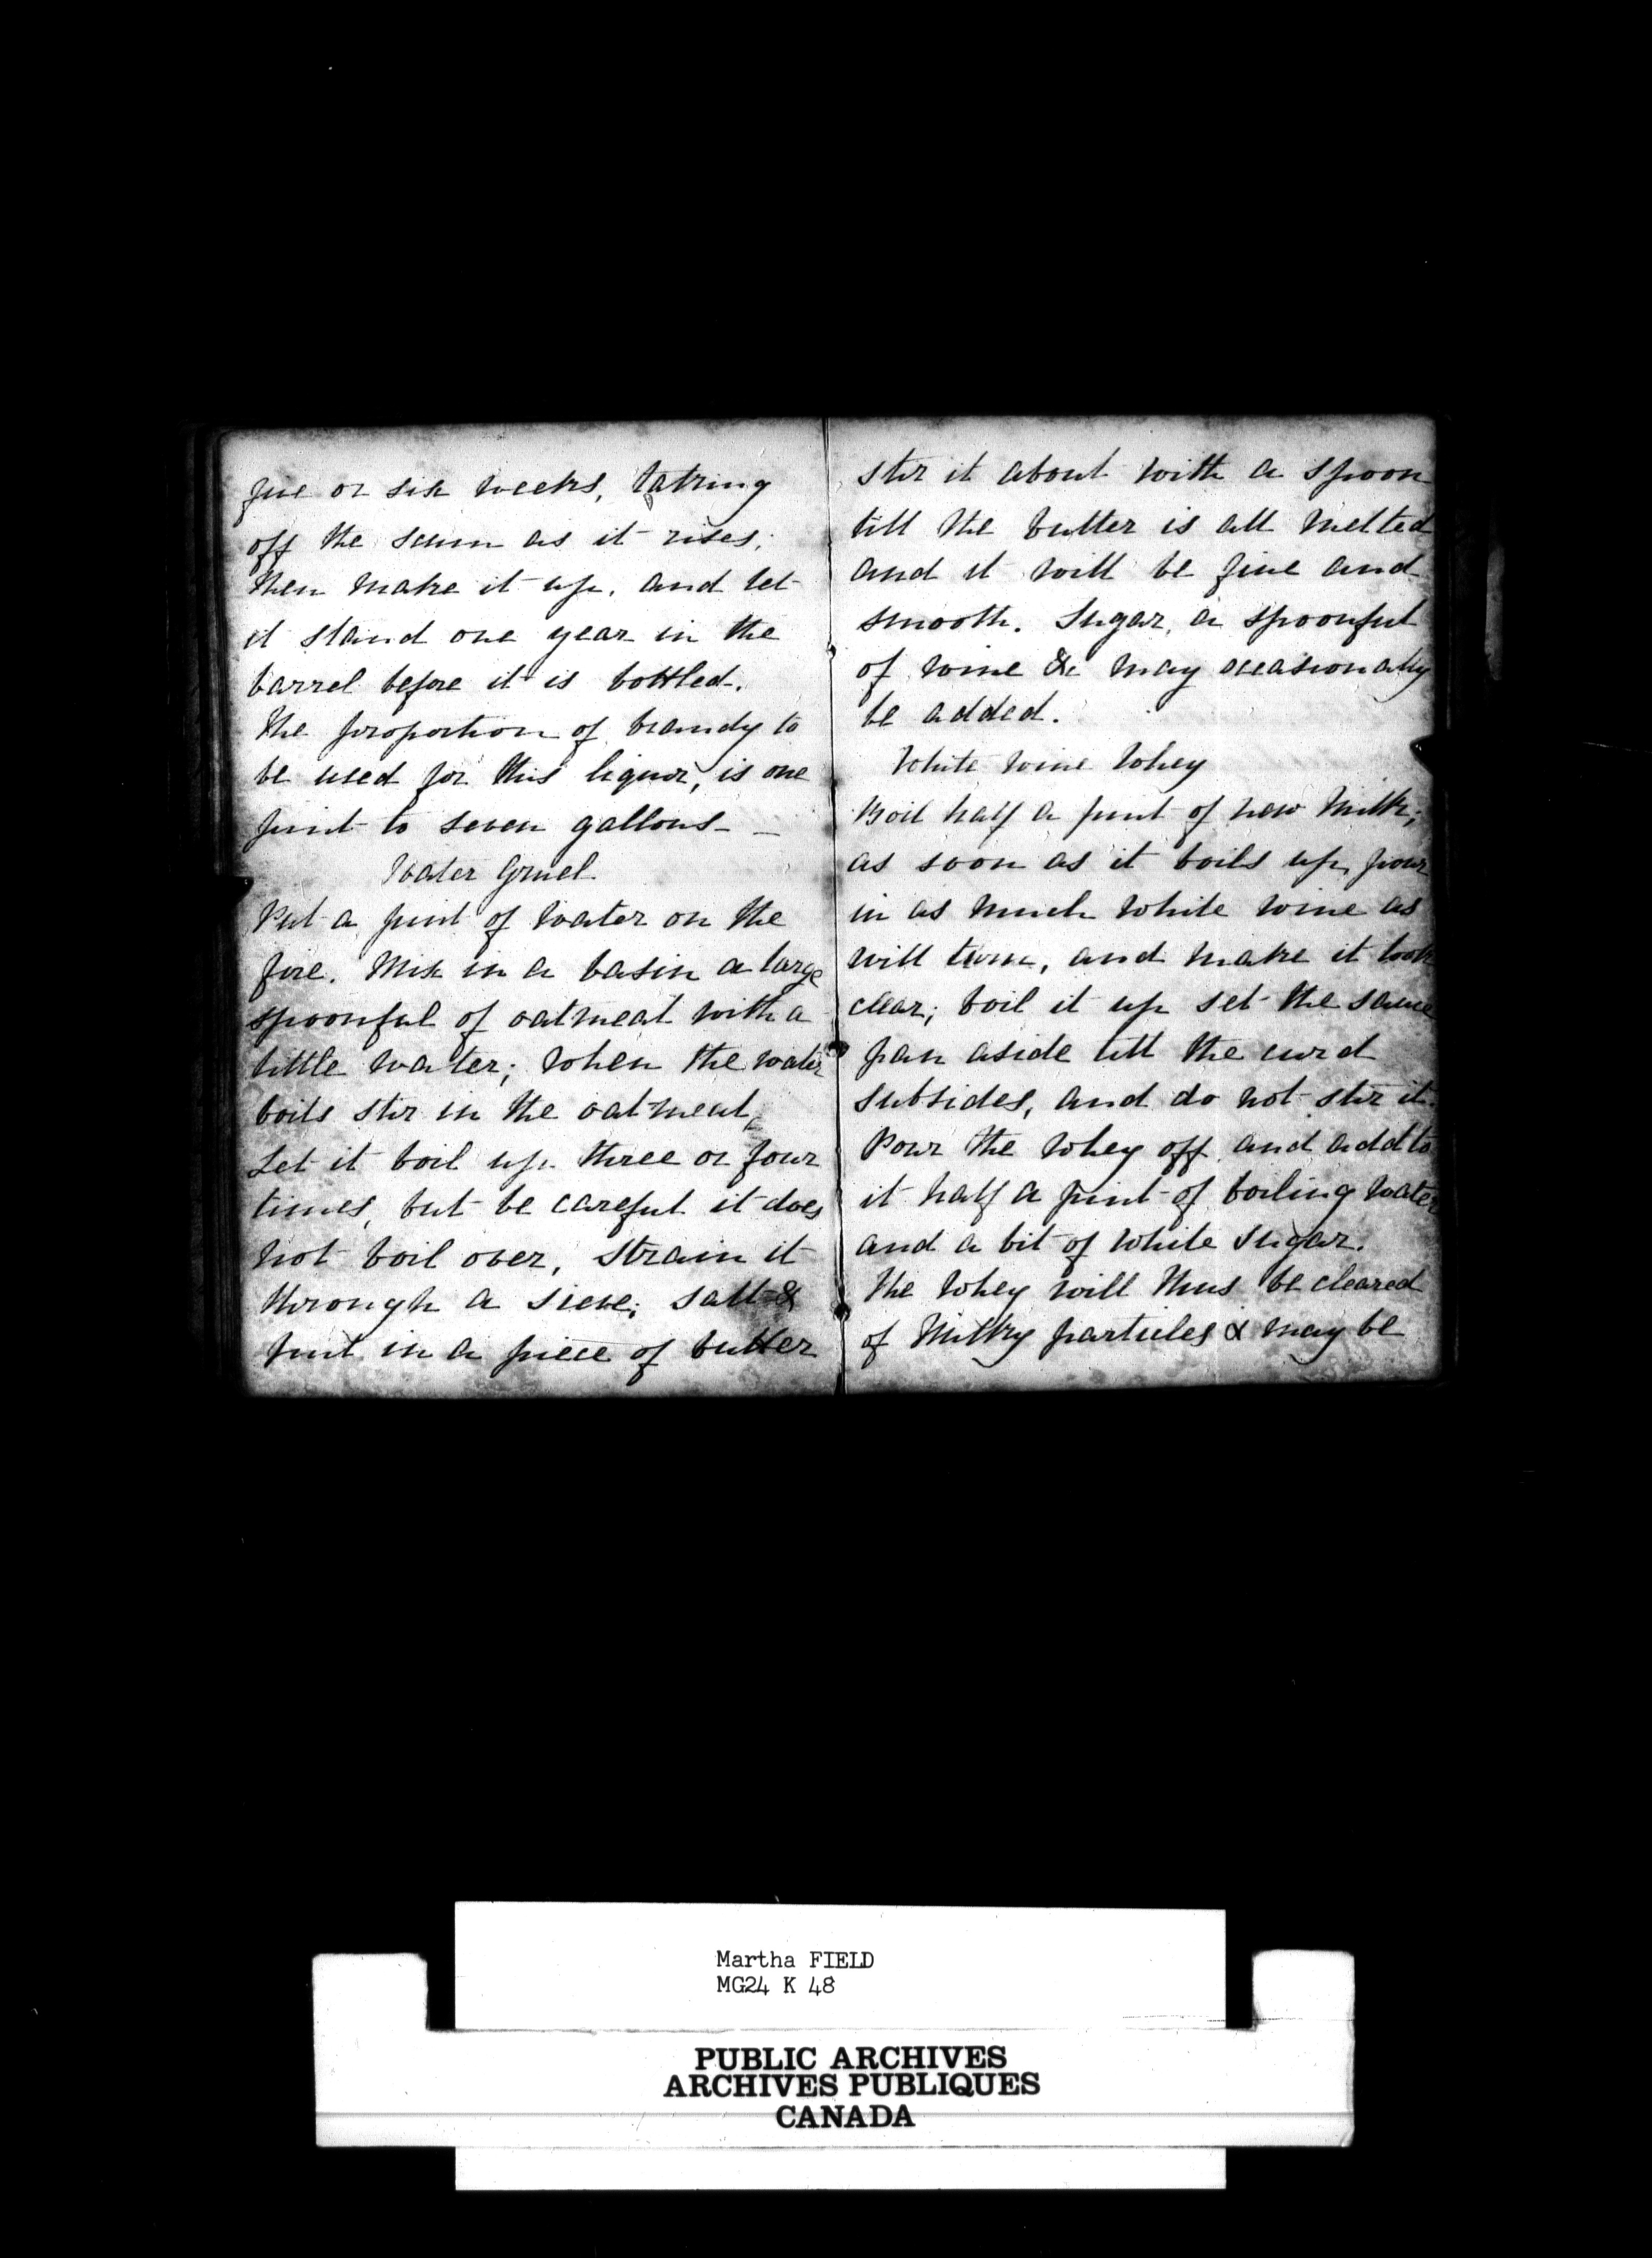 five or six weeks, taking
off the scum as it rises;
then make it up, and let
it stand one year in the
barrel before it is bottled.
The proportion of brandy to
be used for this liquor, is one
pint to seven gallons -
Water Gruel
Put a pint of water on the
fire. Mix in a basin a large
spoonful of oatmeal with a
little water; when the water
boils stir in the oatmeal,
Let it boil up three or four
times, but be careful it does
not boil over, strain it
through a sieve; salt &
put in a piece of butter
stir it about with a spoon
till the butter is all melted
and it will be fine and
smooth. Sugar, a spoonful
of wine &c may occasionally
be added.
White wine Whey
Boil half a pint of new Milk;
as soon as it boils up, pour
in as much white wine as
will turn, and make it look
clear; boil it up set the sauce
pan aside till the curd
subsides, and do not stir it.
Pour the whey off and add to
it half a pint of boiling water
and a bit of white sugar.
The whey will thus be cleared
of Milky particles & may be
Martha FIELD
MG24 K 48
PUBLIC ARCHIVES
ARCHIVES PUBLIQUES
CANADA